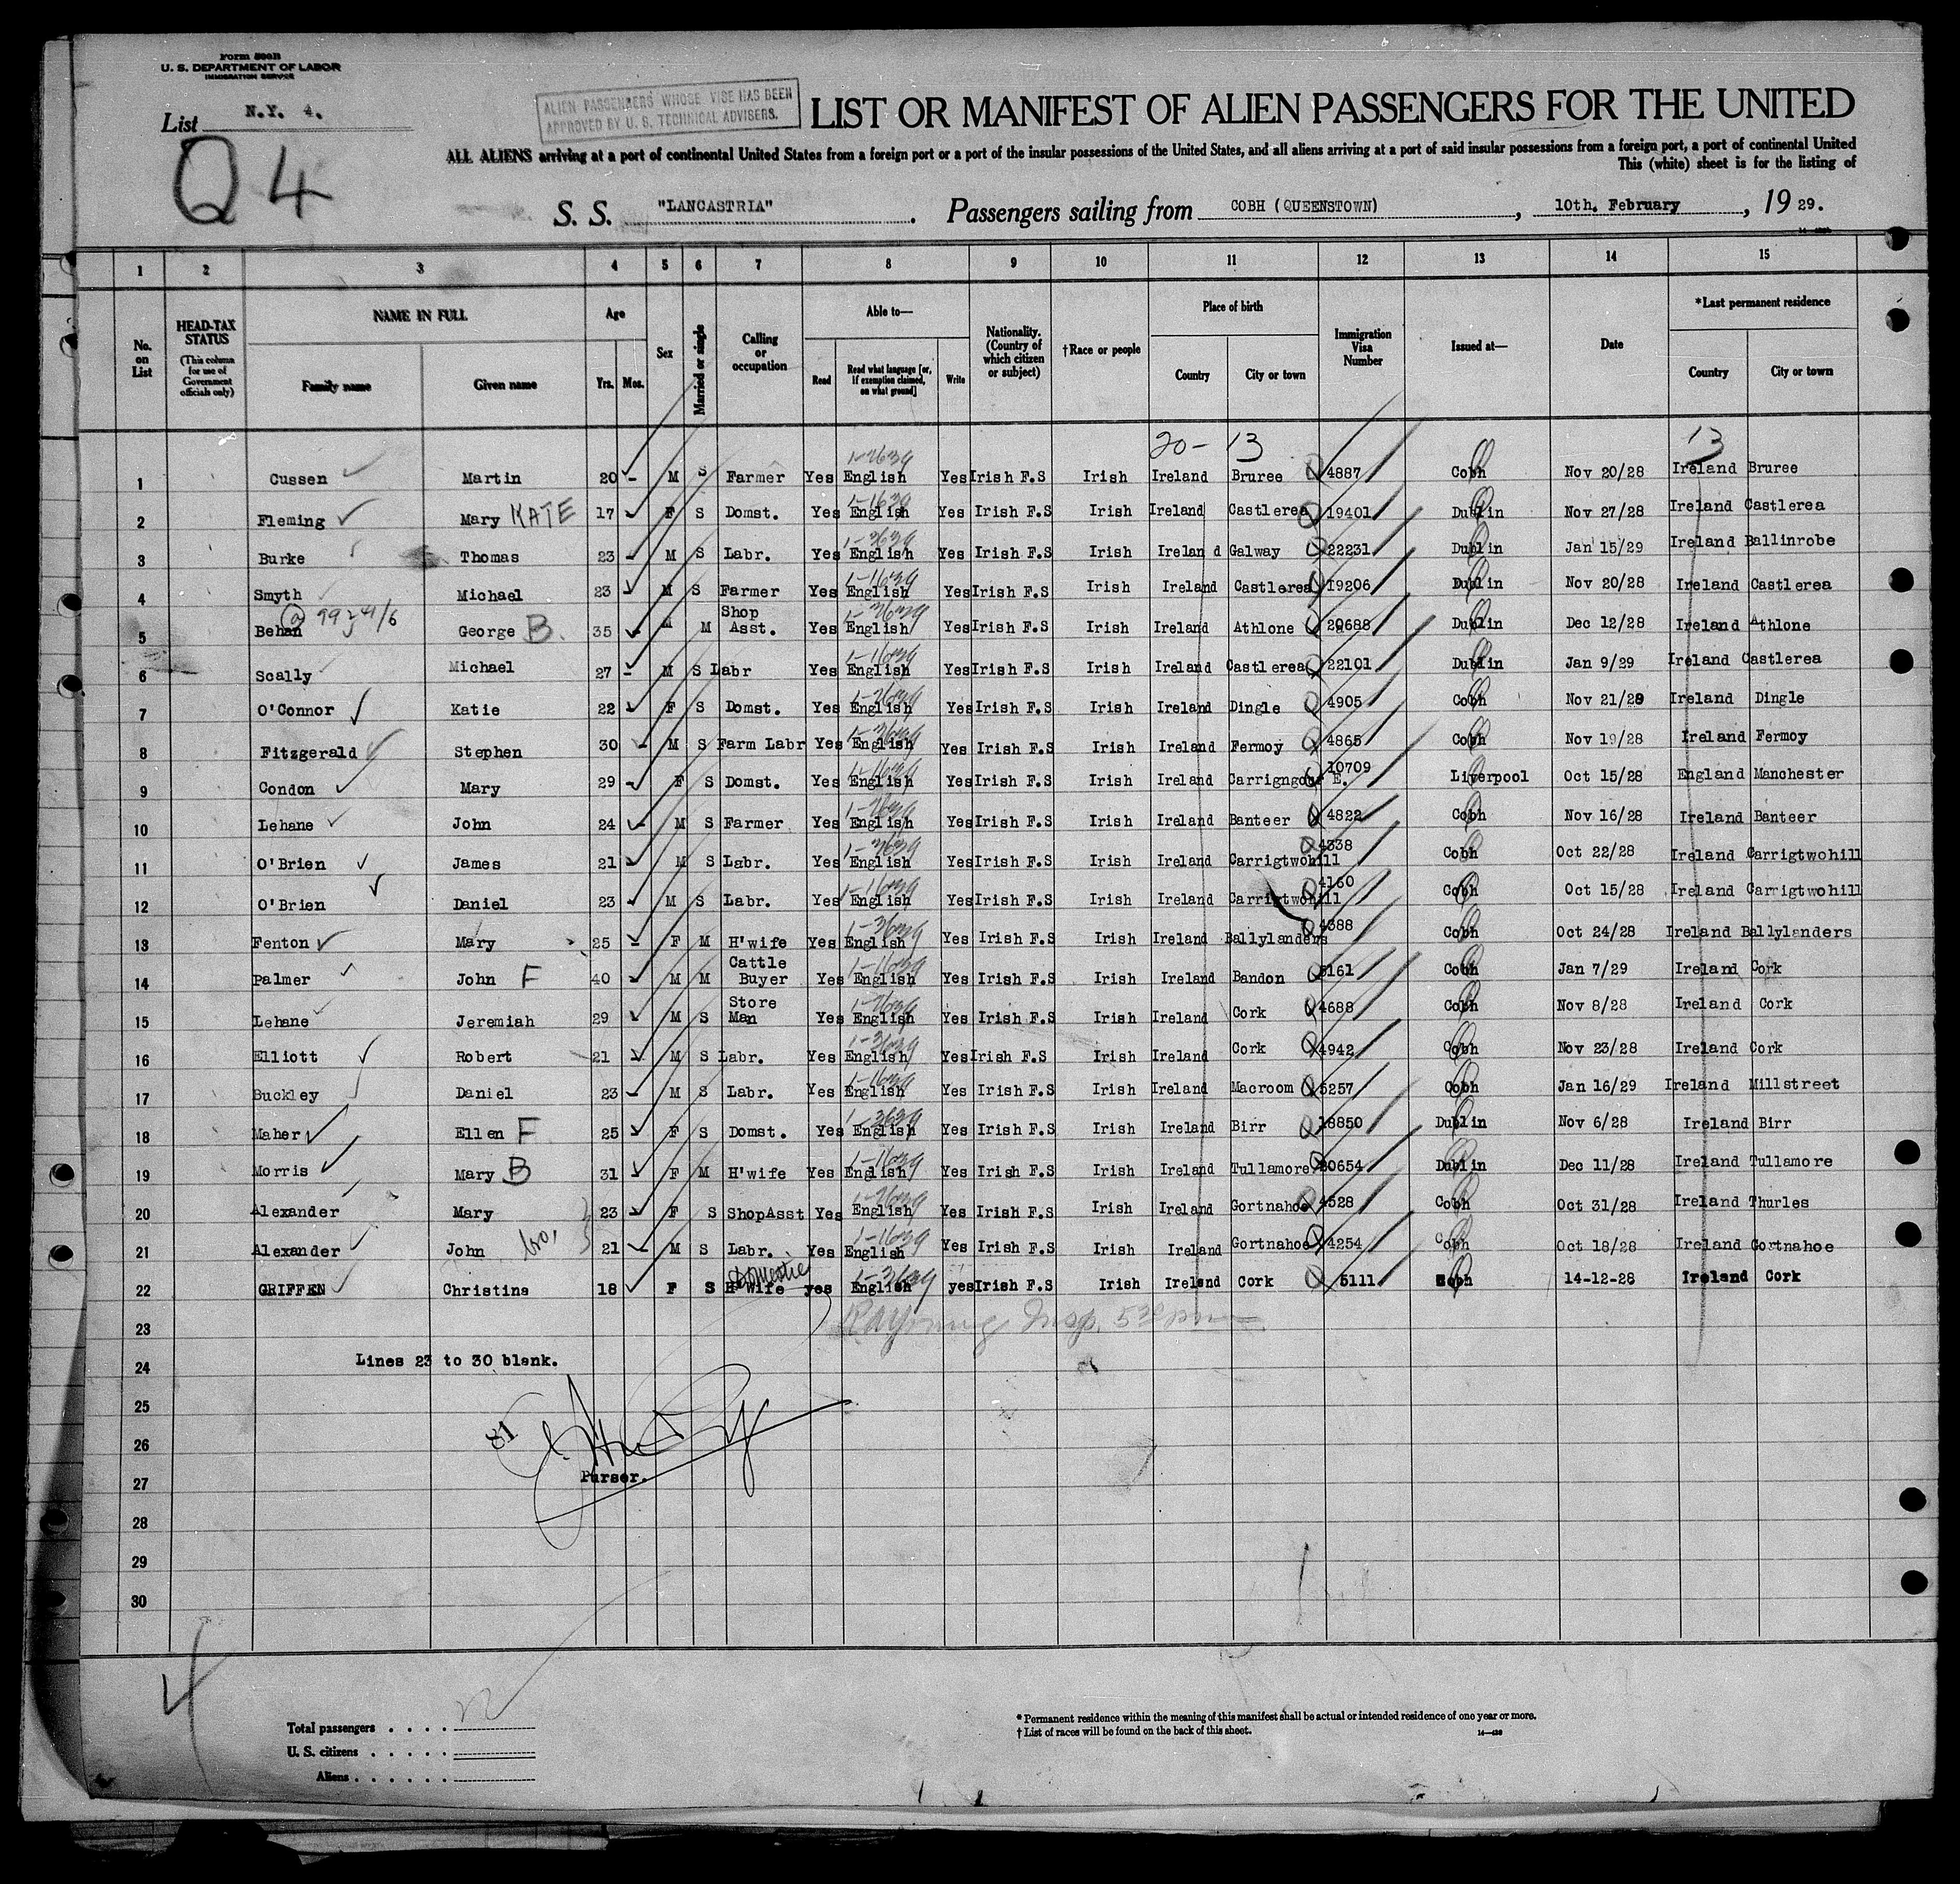 Form 500B
U. S. DEPARTMENT OF LABOR
IMMIGRATION SERVICE
List N.Y. 4.
Q 4
ALIEN PASSENGERS WHOSE VISE HAS BEEN
APPROVED BY U. S. TECHNICAL ADVISERS.
LIST OR MANIFEST OF ALIEN PASSENGERS FOR THE UNITED
ALL ALIENS arriving at a port of continental United States from a foreign port or a port of the insular possessions of the United States, and all aliens arriving at a port of said insular possessions from a foreign port, a port of continental United
This (white) sheet is for the listing of
S. S. "LANCASTRIA". Passengers sailing from COBH (QUEENSTOWN), 10th. February, 19 29.
1 2 3 4 5 6 7 8 9 10 11 12 13 14 15
No. on List
HEAD-TAX STATUS (This column for use of Government officials only)
NAME IN FULL Family name Given name
Age Yrs. Mos.
Sex
Married or single
Calling or occupation
Able to— Read Read what language [or, if exemption claimed, on what ground] Write
Nationality. (Country of which citizen or subject)
†Race or people
Place of birth Country City or town
Immigration Visa Number
Issued at—
Date
*Last permanent residence Country City or town
20- 13 13
1 Cussen Martin 20 - M S Farmer Yes English Yes Irish F.S Irish Ireland Bruree 4887 Cobh Nov 20/28 Ireland Bruree
2 Fleming Mary KATE 17 F S Domst. Yes English Yes Irish F.S Irish Ireland Castlerea 19401 Dublin Nov 27/28 Ireland Castlerea
3 Burke Thomas 23 - M S Labr. Yes English Yes Irish F.S Irish Ireland Galway 22231 Dublin Jan 15/29 Ireland Ballinrobe
4 Smyth Michael 23 M S Farmer Yes English Yes Irish F.S Irish Ireland Castlerea 19206 Dublin Nov 20/28 Ireland Castlerea
5 Behan George B. 35 - M M Shop Asst. Yes English Yes Irish F.S Irish Ireland Athlone 20688 Dublin Dec 12/28 Ireland Athlone
6 Scally Michael 27 - M S Labr Yes English Yes Irish F.S Irish Ireland Castlerea 22101 Dublin Jan 9/29 Ireland Castlerea
7 O'Connor Katie 22 F S Domst. Yes English Yes Irish F.S Irish Ireland Dingle 4905 Cobh Nov 21/28 Ireland Dingle
8 Fitzgerald Stephen 30 - M S Farm Labr Yes English Yes Irish F.S Irish Ireland Fermoy 4865 Cobh Nov 19/28 Ireland Fermoy
9 Condon Mary 29 - F S Domst. Yes English Yes Irish F.S Irish Ireland 10709 Liverpool Oct 15/28 England Manchester
10 Lehane John 24 - M S Farmer Yes English Yes Irish F.S Irish Ireland Banteer 4822 Cobh Nov 16/28 Ireland Banteer
11 O'Brien James 21 M S Labr. Yes English Yes Irish F.S Irish Ireland Carrigtwohill 4338 Cobh Oct 22/28 Ireland Carrigtwohill
12 O'Brien Daniel 23 M S Labr. Yes English Yes Irish F.S Irish Ireland Carrigtwohill 4160 Cobh Oct 15/28 Ireland Carrigtwohill
13 Fenton Mary 25 - F M H'wife Yes English Yes Irish F.S Irish Ireland Ballylanders 4388 Cobh Oct 24/28 Ireland Ballylanders
14 Palmer John F 40 M M Cattle Buyer Yes English Yes Irish F.S Irish Ireland Bandon 5161 Cobh Jan 7/29 Ireland Cork
15 Lehane Jeremiah 29 M S Store Man Yes English Yes Irish F.S Irish Ireland Cork 4688 Cobh Nov 8/28 Ireland Cork
16 Elliott Robert 21 M S Labr. Yes English Yes Irish F.S Irish Ireland Cork 4942 Cobh Nov 23/28 Ireland Cork
17 Buckley Daniel 23 - M S Labr. Yes English Yes Irish F.S Irish Ireland Macroom 5257 Cobh Jan 16/29 Ireland Millstreet
18 Maher Ellen F 25 F S Domst. Yes English Yes Irish F.S Irish Ireland Birr 18850 Dublin Nov 6/28 Ireland Birr
19 Morris Mary B 31 F M H'wife Yes English Yes Irish F.S Irish Ireland Tullamore 20654 Dublin Dec 11/28 Ireland Tullamore
20 Alexander Mary 23 F S ShopAsst Yes English Yes Irish F.S Irish Ireland Gortnahoe 4528 Cobh Oct 31/28 Ireland Thurles
21 Alexander John 21 M S Labr. Yes English Yes Irish F.S Irish Ireland Gortnahoe 4254 Cobh Oct 18/28 Ireland Gortnahoe
22 GRIFFEN Christina 18 F S H'wife Domestic yes English yes Irish F.S Irish Ireland Cork 5111 Cobh 14-12-28 Ireland Cork
23
24 Lines 23 to 30 blank.
25
26
81
27 Purser.
28
29
30
4
Total passengers . . . .
U. S. citizens . . . . .
Aliens . . . . . .
* Permanent residence within the meaning of this manifest shall be actual or intended residence of one year or more.
† List of races will be found on the back of this sheet.